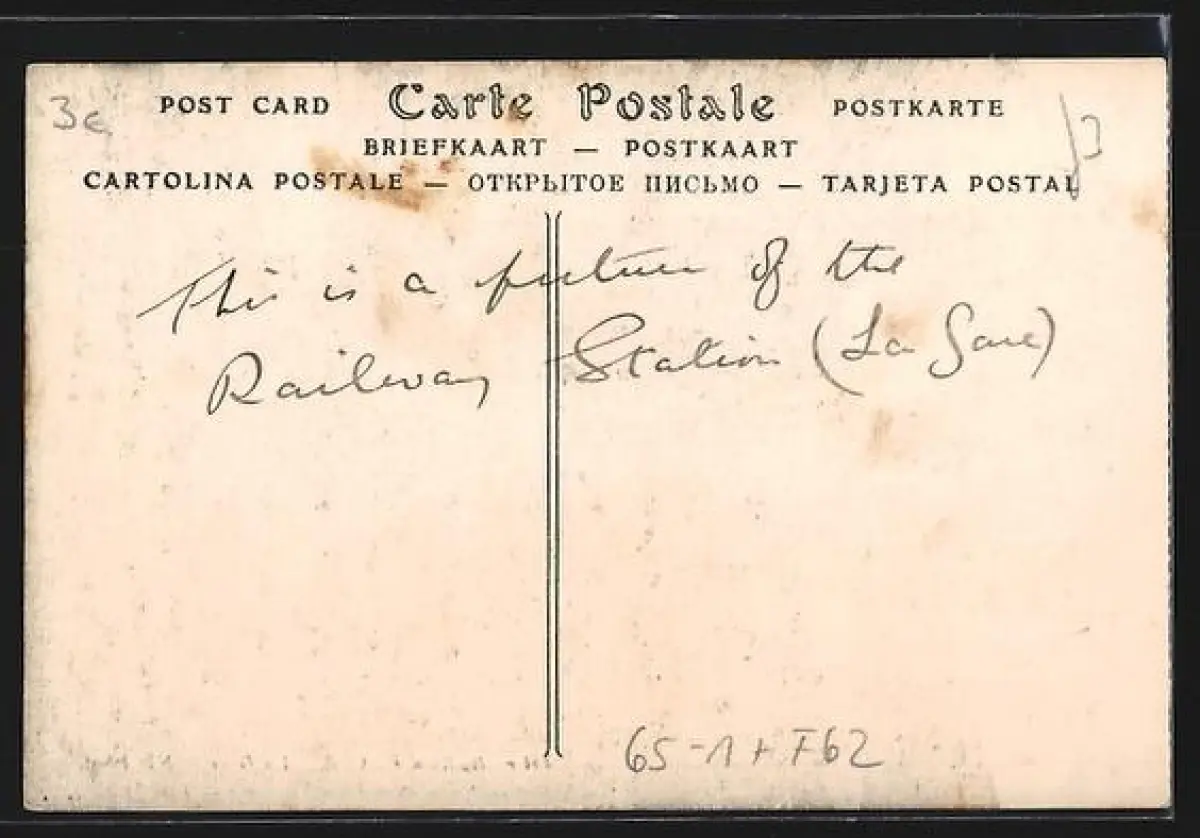 3e POST CARD Carte Postale POSTKARTE
BRIEFKAART — POSTKAART
CARTOLINA POSTALE — ОТКРЫТОЕ ПИСЬМО — TARJETA POSTAL
This is a picture of the
Railway Station (La Gare)
65-1+F62